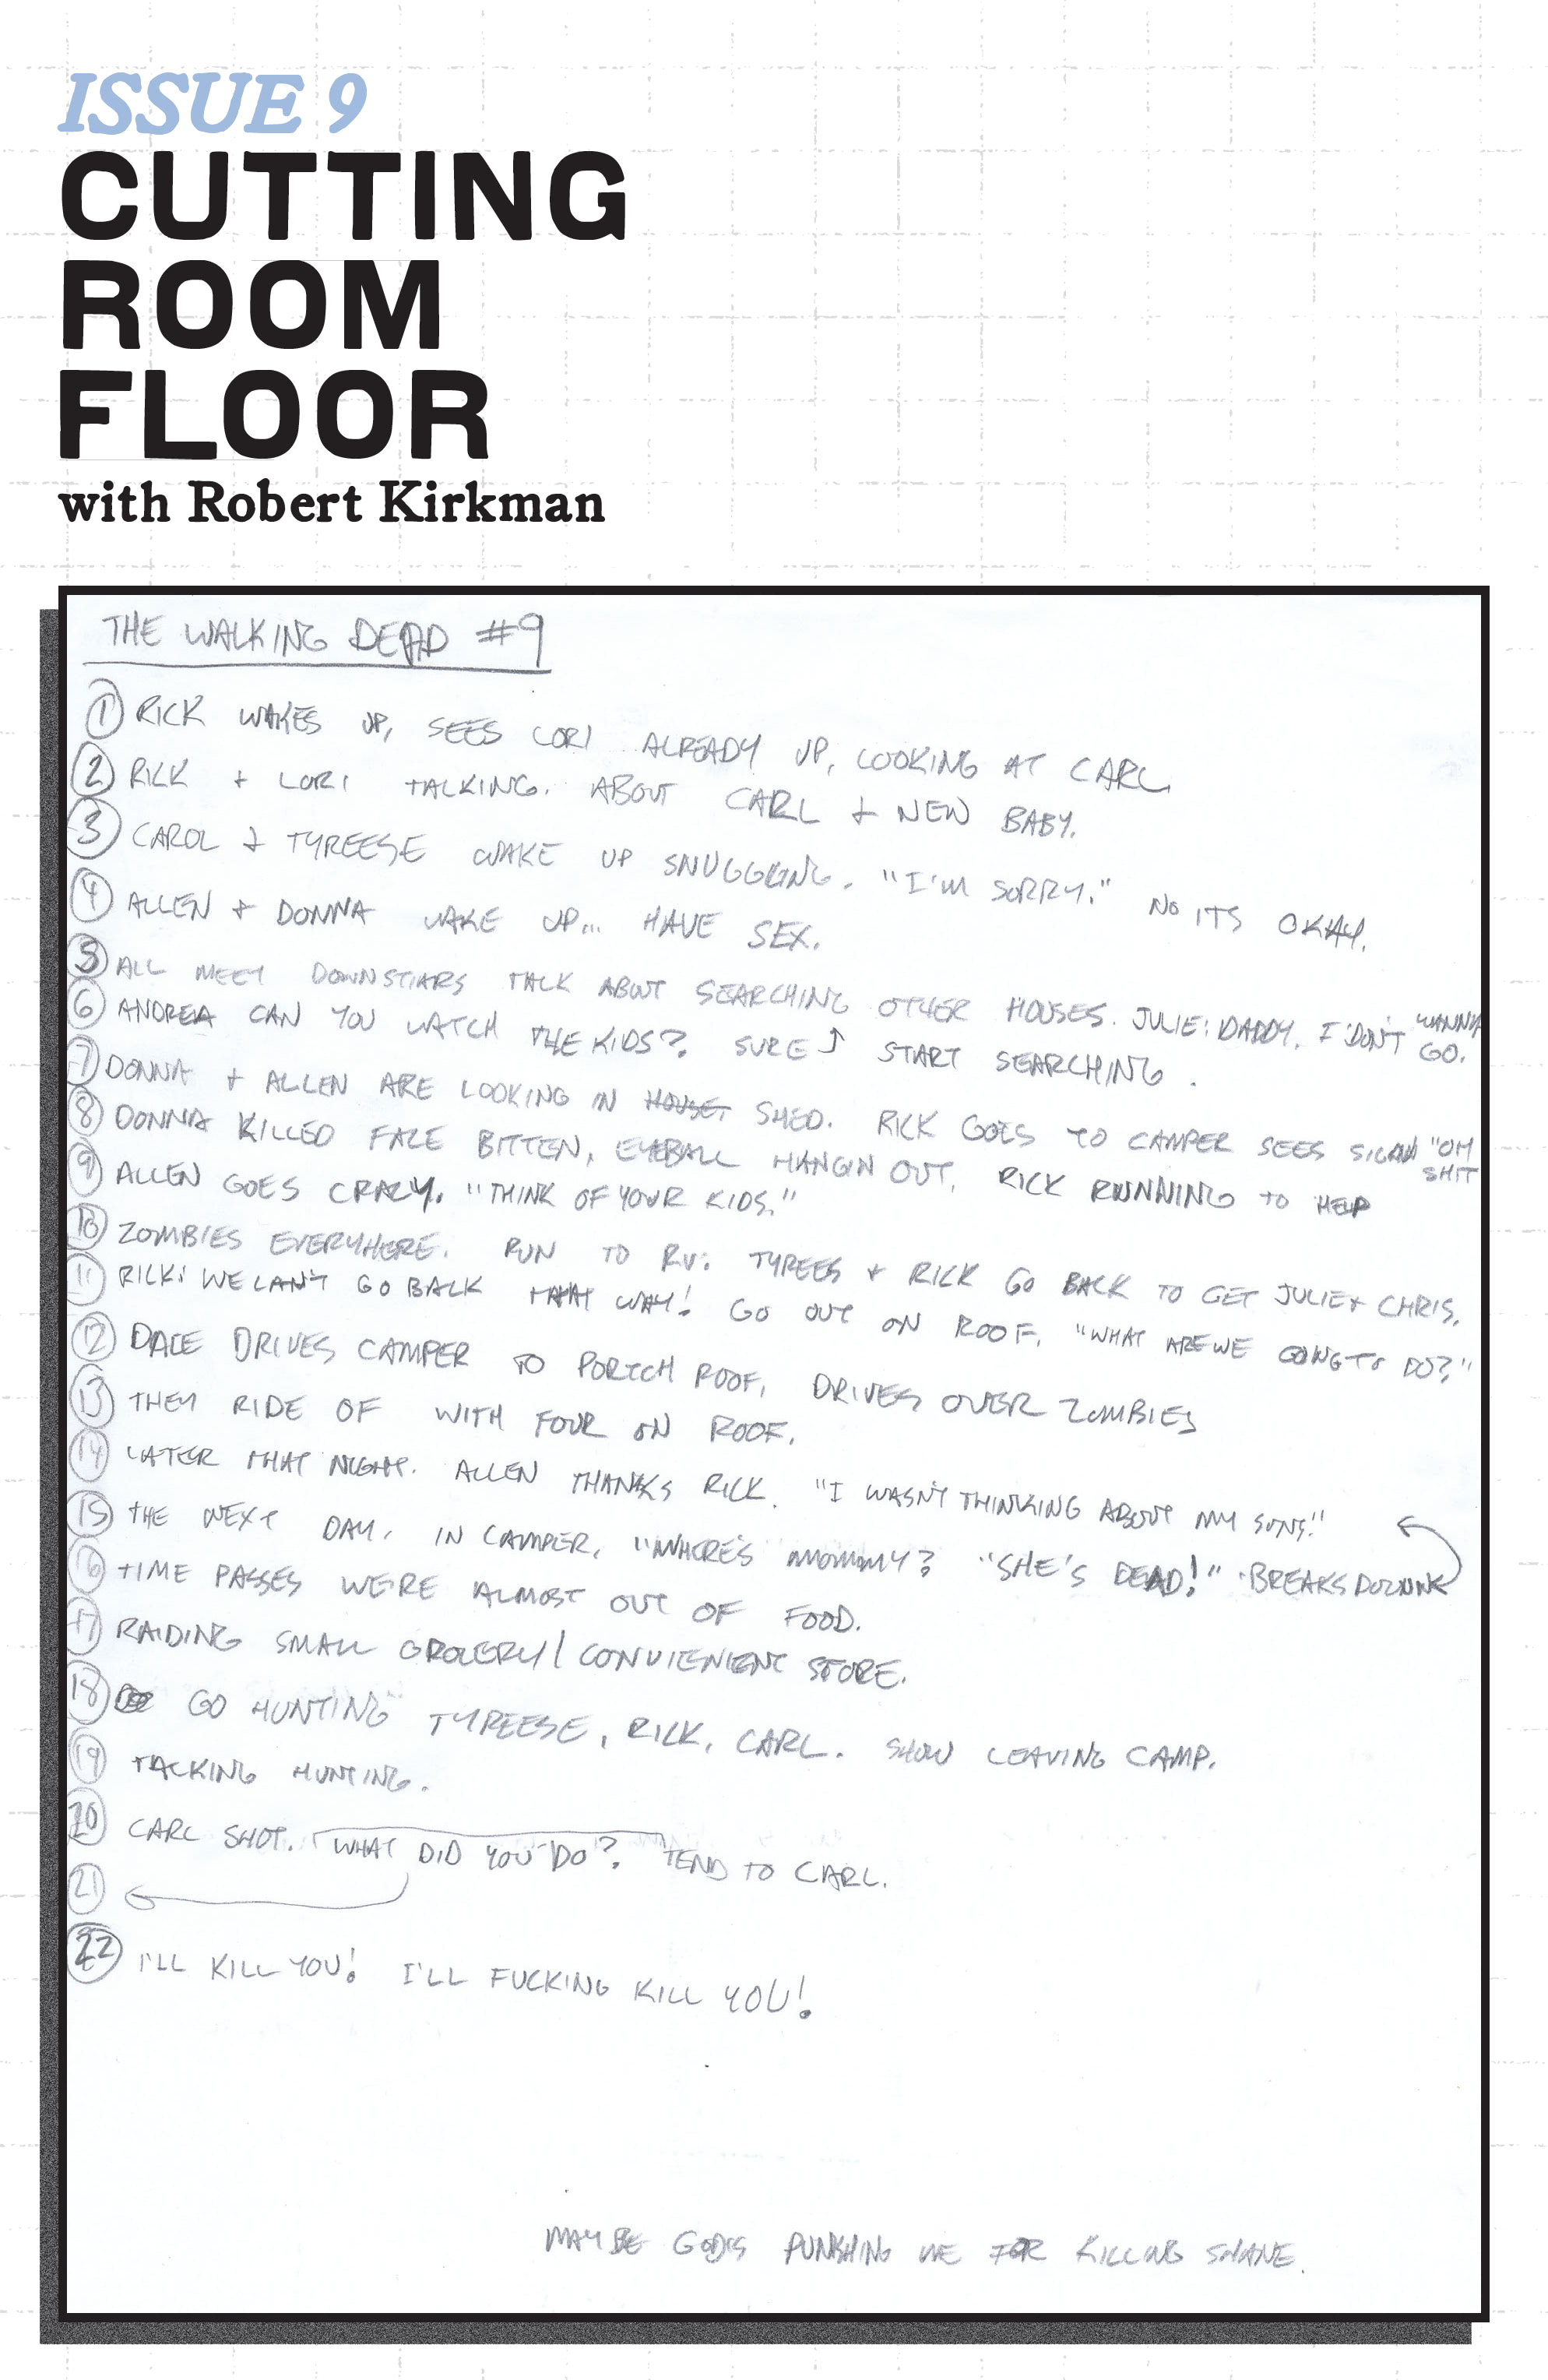 ISSUE 9
CUTTING
ROOM
FLOOR
with Robert Kirkman
THE WALKING DEAD #9
1 RICK WAKES UP, SEES LORI ALREADY UP, LOOKING AT CARL
2 RICK + LORI TALKING. ABOUT CARL + NEW BABY.
3 CAROL & TYREESE WAKE UP SNUGGLING. "I'M SORRY." NO ITS OKAY.
4 ALLEN + DONNA WAKE UP... HAVE SEX.
5 ALL MEET DOWNSTIARS TALK ABOUT SEARCHING OTHER HOUSES. JULIE: DADDY, I DON'T WANNA GO.
6 ANDREA CAN YOU WATCH THE KIDS? SURE ⤴ START SEARCHING.
7 DONNA + ALLEN ARE LOOKING IN HOUSE SHED. RICK GOES TO CAMPER SEES SIGN "OH SHIT
8 DONNA KILLED FACE BITTEN, EYEBALL HANGIN OUT. RICK RUNNING TO HELP
9 ALLEN GOES CRAZY. "THINK OF YOUR KIDS."
10 ZOMBIES EVERYHERE. RUN TO RV. TYREES + RICK GO BACK TO GET JULIE + CHRIS.
11 RICK: WE CAN'T GO BACK THAT WAY! GO OUT ON ROOF. "WHAT ARE WE GOING TO DO?"
12 DALE DRIVES CAMPER TO PORTCH ROOF, DRIVES OVER ZOMBIES
13 THEY RIDE OF WITH FOUR ON ROOF.
14 LATER THAT NIGHT. ALLEN THANKS RICK. "I WASN'T THINKING ABOUT MY SONS."
15 THE NEXT DAY, IN CAMPER, "WHERE'S MOMMY? "SHE'S DEAD!" BREAKS DOWN
16 TIME PASSES WE'RE ALMOST OUT OF FOOD.
17 RAIDING SMALL GROCERY/CONVIENIENT STORE.
18 GO HUNTING TYREESE, RICK, CARL. SHOW LEAVING CAMP.
19 TALKING HUNTING.
20 CARL SHOT. WHAT DID YOU DO? TEND TO CARL.
21
22 I'LL KILL YOU! I'LL FUCKING KILL YOU!
MAYBE GOD IS PUNISHING ME FOR KILLING SHANE.